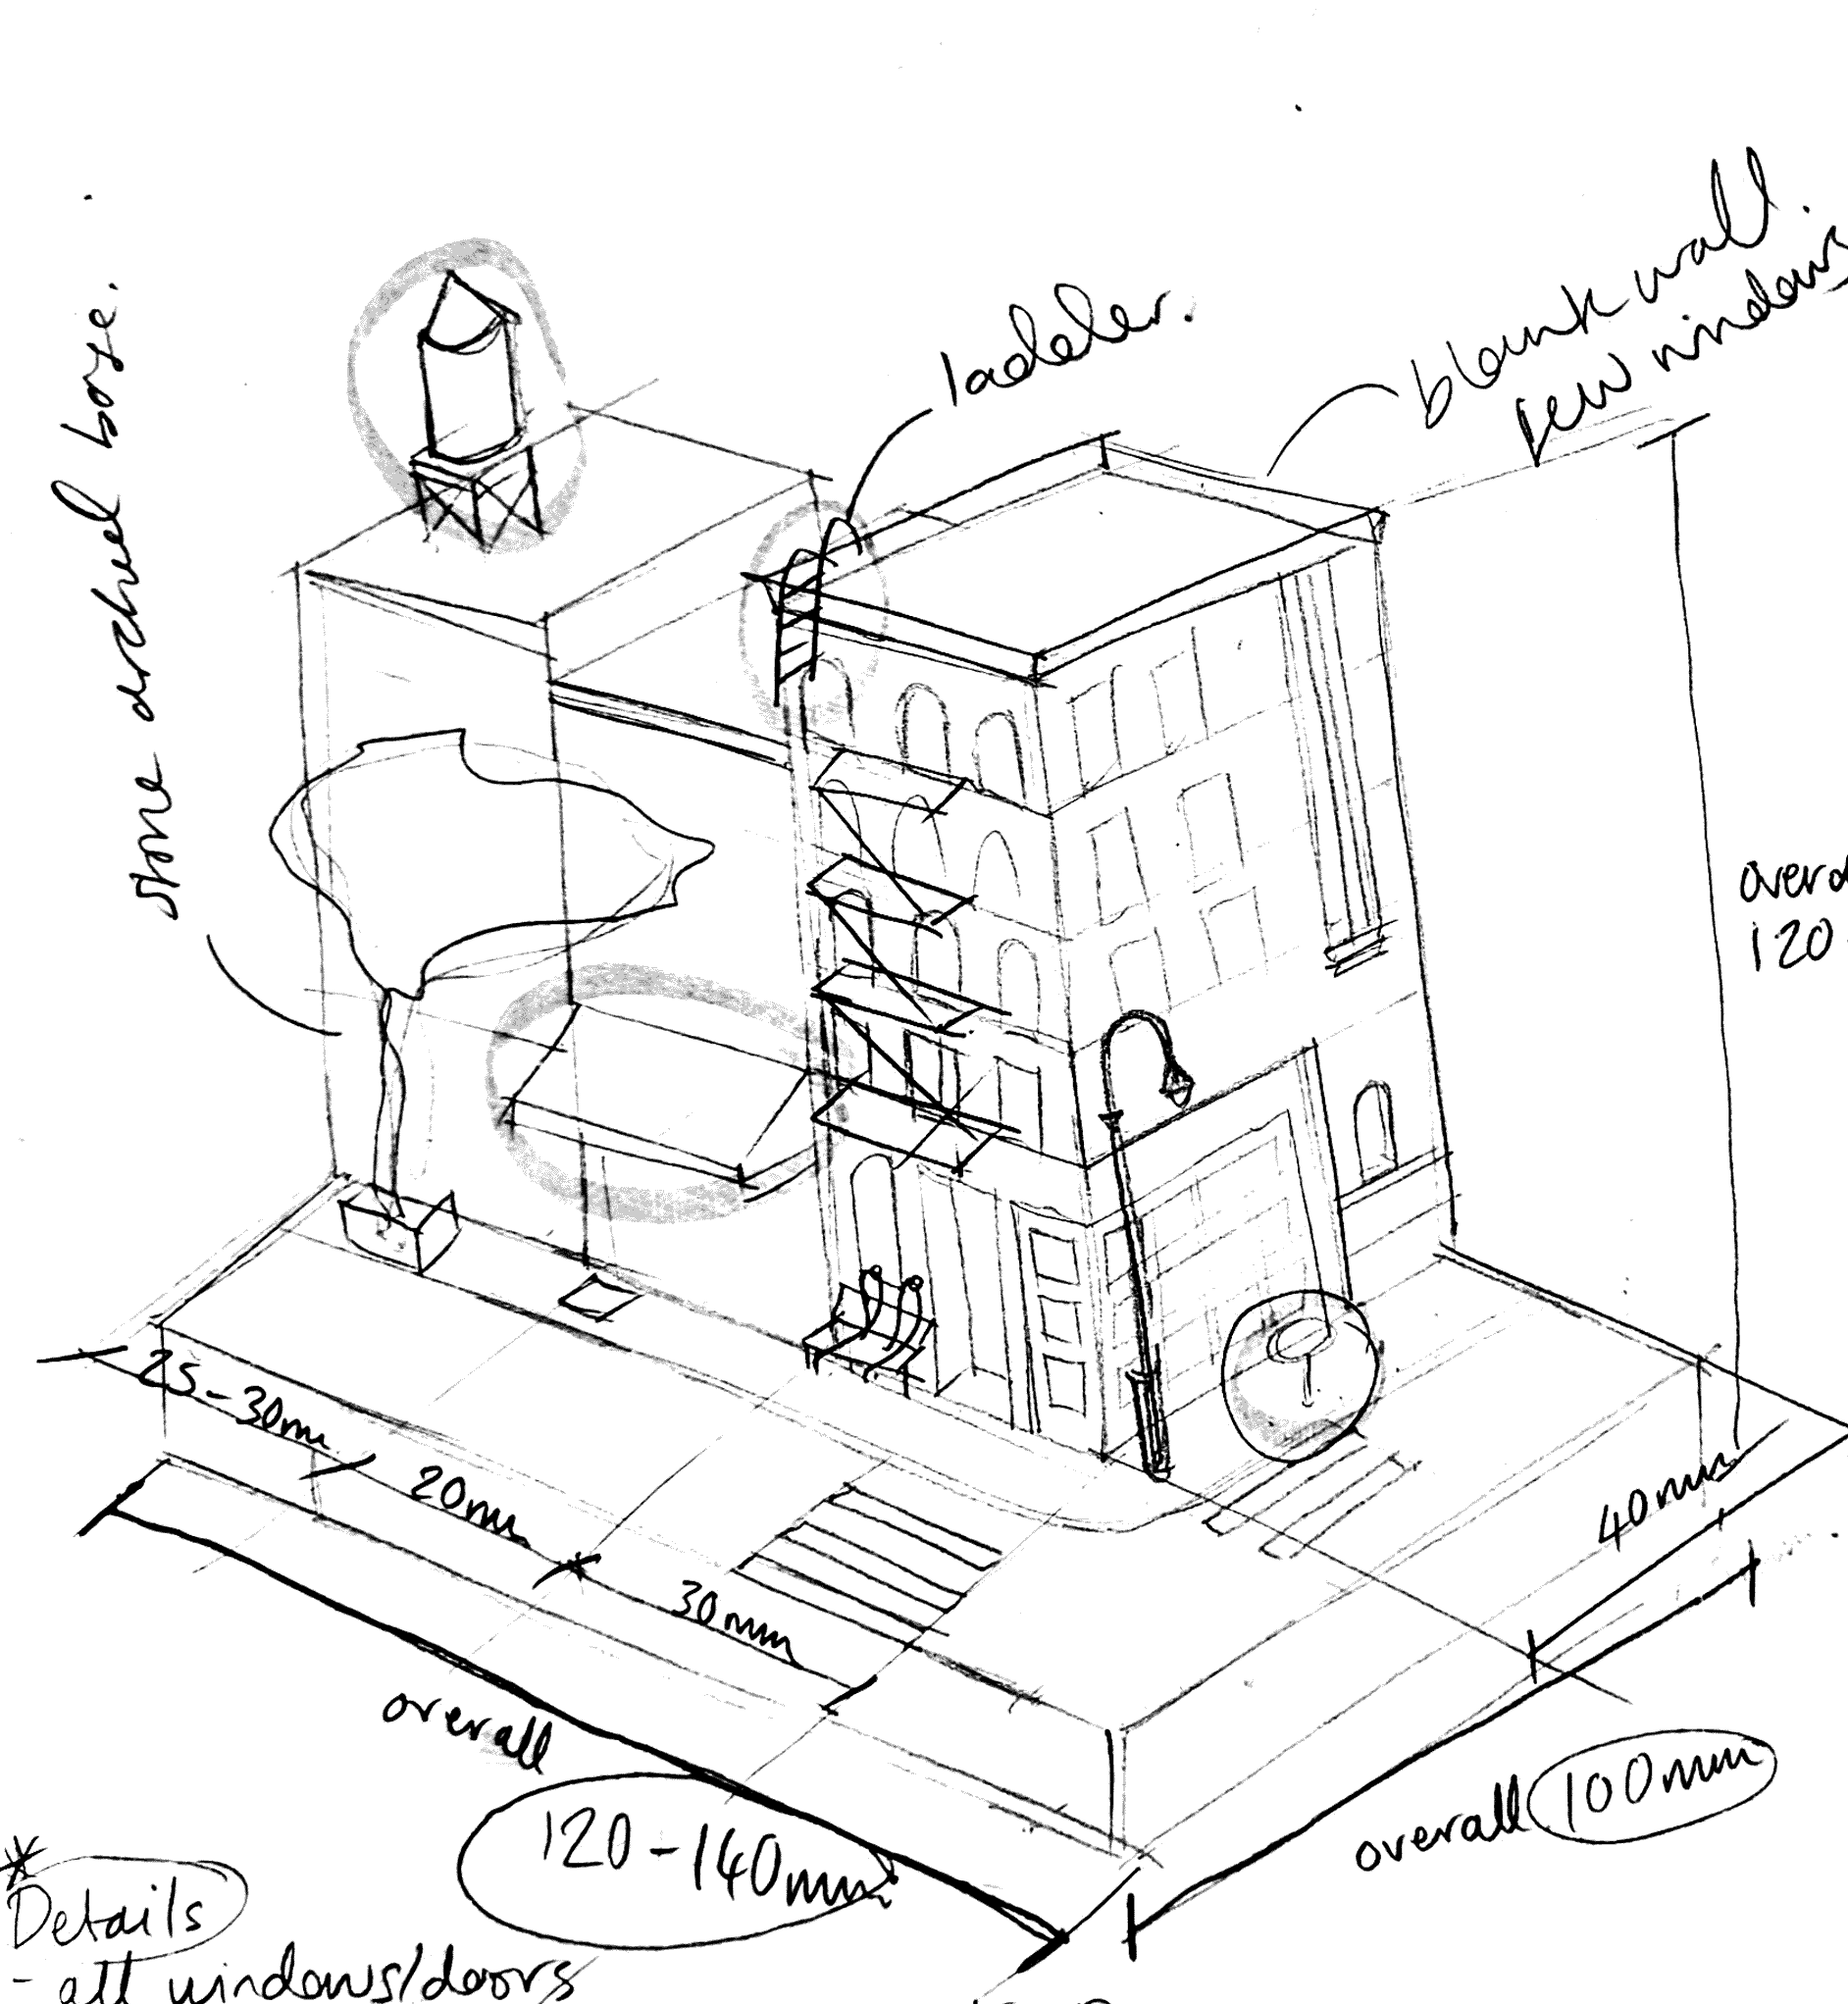 stone arched base.
ladder.
blank wall.
few windows
120
25-30mm
20mm
30mm
40mm
overall
120-140mm
overall 100mm
*
Details
- all windows/doors